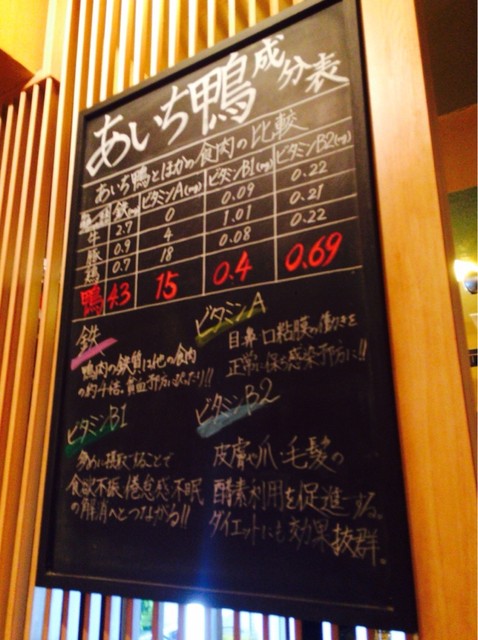 あいち鴨成分表
あいち鴨とほかの食肉の比較
鉄(mg) ビタミンA(mg) ビタミンB1(mg) ビタミンB2(mg)
牛 2.7 0 0.09 0.22
豚 0.9 4 1.01 0.21
鶏 0.7 18 0.08 0.22
鴨 4.3 15 0.4 0.69
鉄
鴨肉の鉄質は他の食肉
貧血予防にぴったり!!
ビタミンA
目・鼻・口粘膜の働きを
正常に保ち感染予防に!!
ビタミンB1
多めに摂取することで
食欲不振・倦怠感・不眠
の解消へとつながる!!
ビタミンB2
皮膚や爪・毛髪の
酵素利用を促進する。
ダイエットにも効果抜群。